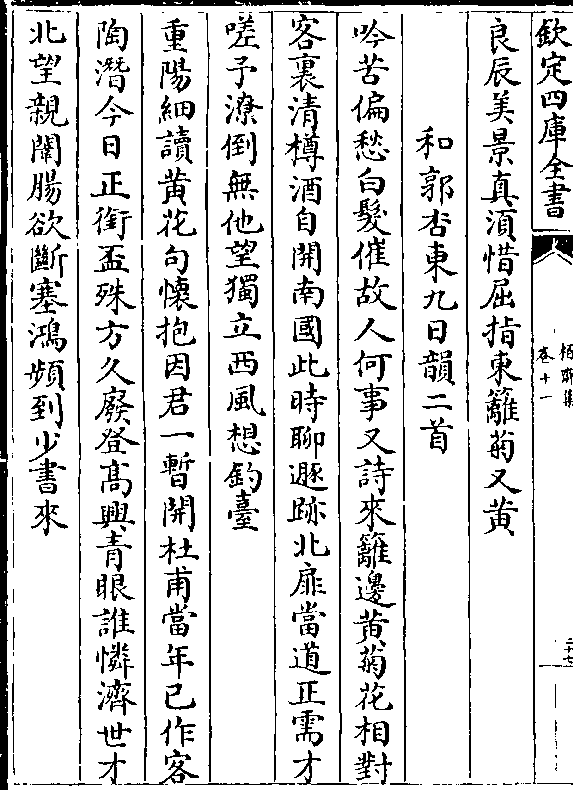 欽定四庫全書
卷十一
良辰美景真須惜屈指東籬菊又黄
和郭杏東九日韻二首
吟苦偏愁白髮催故人何事又詩來籬邊黄菊花相對
客裏清樽酒自開南國此時聊遯跡北扉當道正需才
嗟予潦倒無他望獨立西風想釣臺
重陽細讀黄花句懷抱因君一暫開杜甫當年已作客
陶潛今日正銜盃殊方久廢登高興青眼誰憐濟世才
北望親闈腸欲斷塞鴻頻到少書來